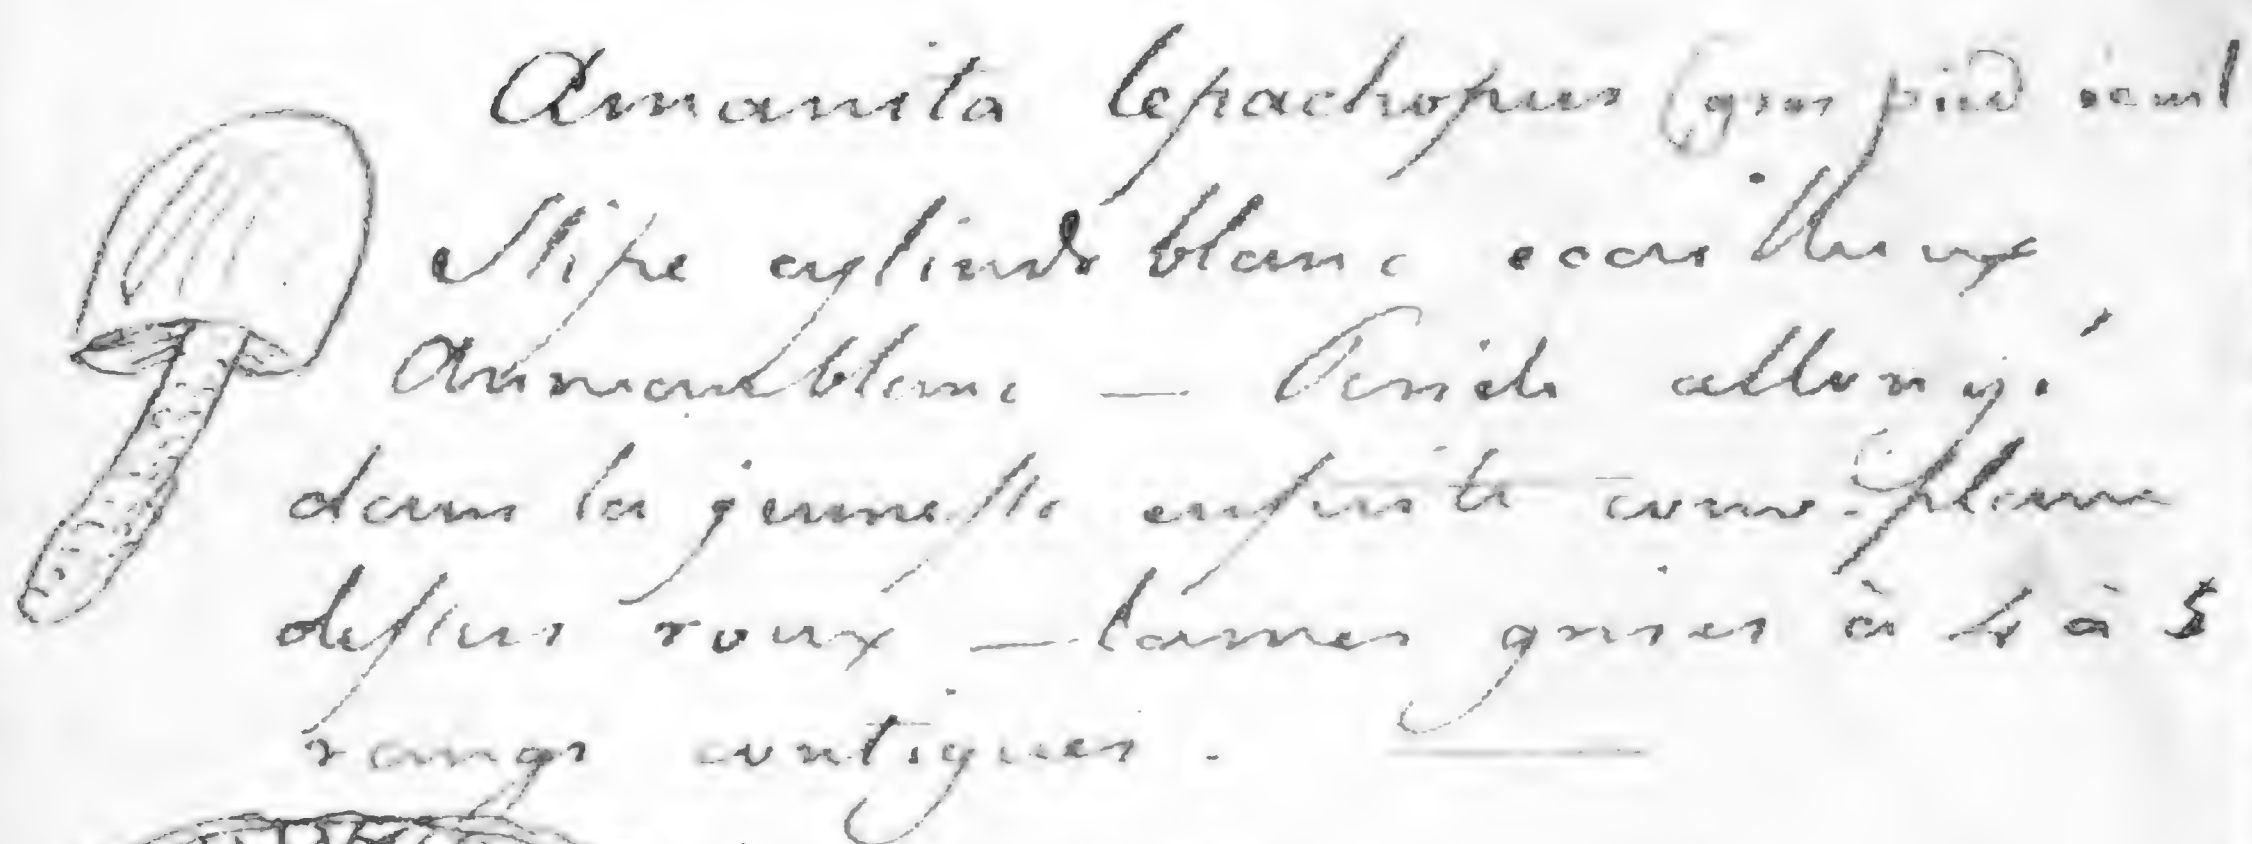 Amanita lepachopus (gros pied écail
Stipe cylindr blanc ecailleux
Anneau blanc — Peridi allongé
dans la jeunesse ensuite conv. plane
dessus roux — lames grises à 4 à 5
rangs contigues.